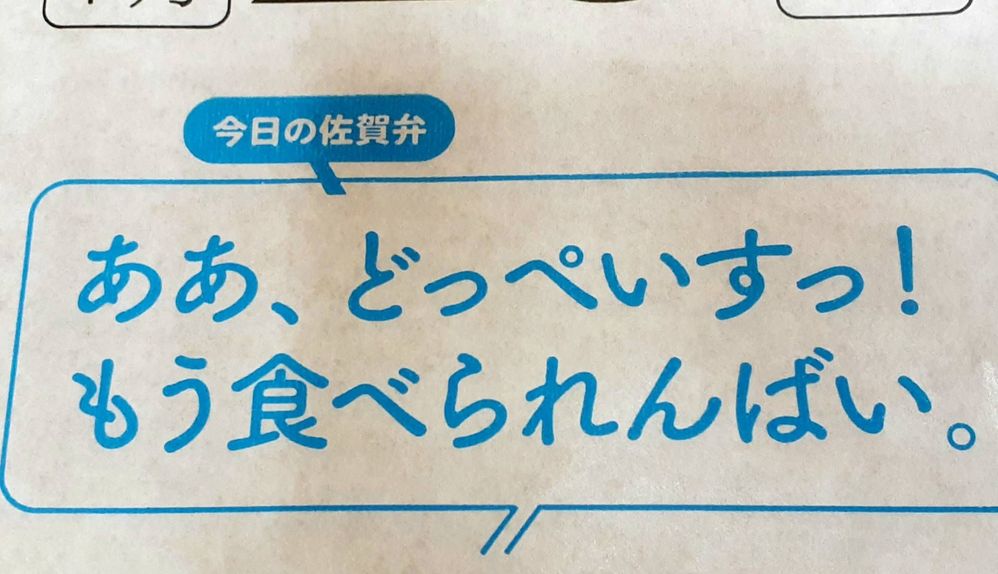 今日の佐賀弁
ああ、どっぺいすっ!
もう食べられんばい。